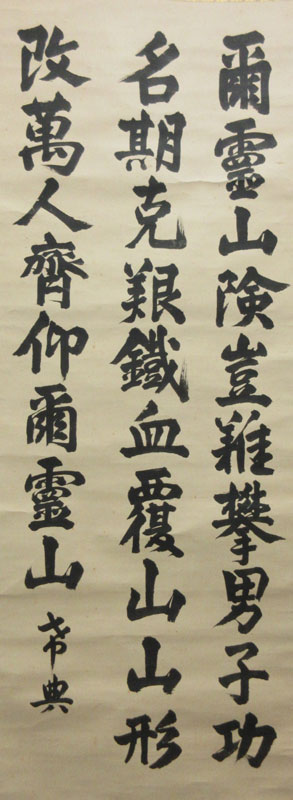 爾靈山険豈難攀男子功
名期克艱鐵血覆山山形
改萬人齊仰爾靈山
希典